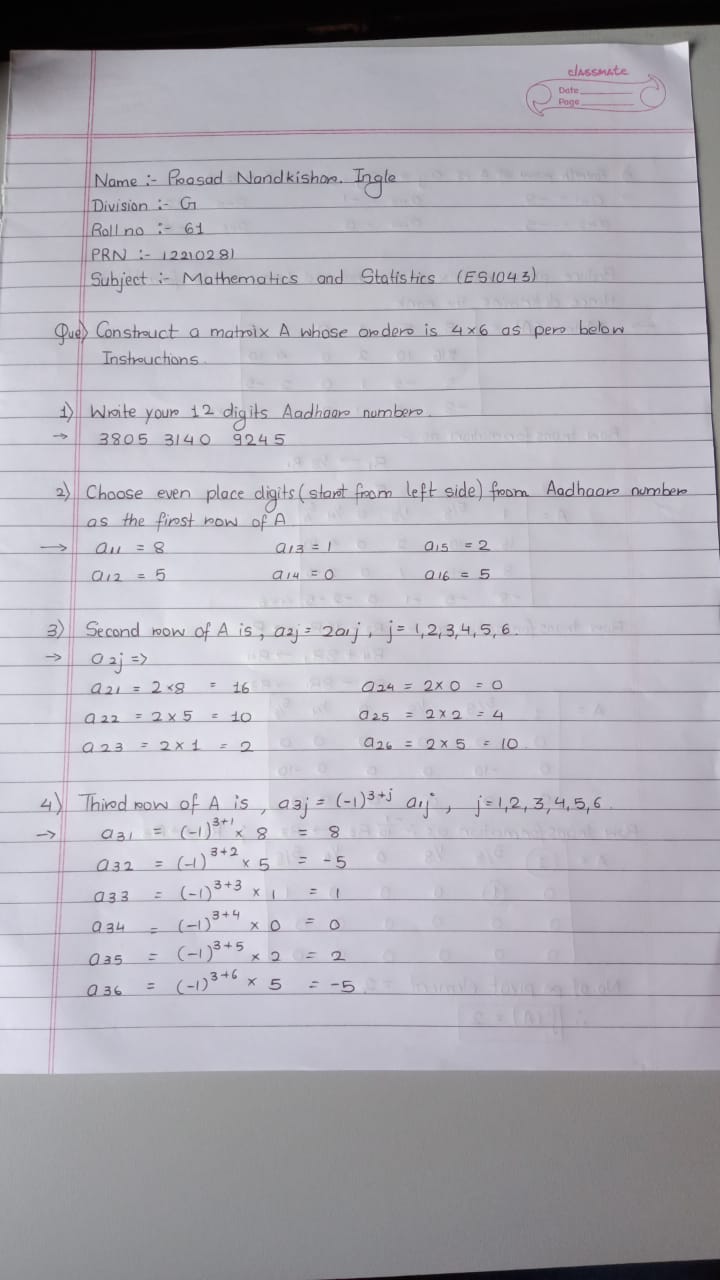 classmate
Date
Page
Name :- Prasad Nandkishor. Ingle
Division :- G
Roll no :- 61
PRN :- 12210281
Subject :- Mathematics and Statistics (ES1043)
Que) Construct a matrix A whose order is 4×6 as per below
Instructions.
1) Write your 12 digits Aadhaar number.
→ 3805 3140 9245
2) Choose even place digits (start from left side) from Aadhaar number
as the first row of A
→ a11 = 8 a13 = 1 a15 = 2
a12 = 5 a14 = 0 a16 = 5
3) Second row of A is, a2j = 2a1j, j = 1,2,3,4,5,6.
→ a2j =>
a21 = 2×8 = 16 a24 = 2×0 = 0
a22 = 2×5 = 10 a25 = 2×2 = 4
a23 = 2×1 = 2 a26 = 2×5 = 10
4) Third row of A is, a3j = (-1)^3+j a1j, j=1,2,3,4,5,6.
→ a31 = (-1)^3+1 × 8 = 8
a32 = (-1)^3+2 × 5 = -5
a33 = (-1)^3+3 × 1 = 1
a34 = (-1)^3+4 × 0 = 0
a35 = (-1)^3+5 × 2 = 2
a36 = (-1)^3+6 × 5 = -5